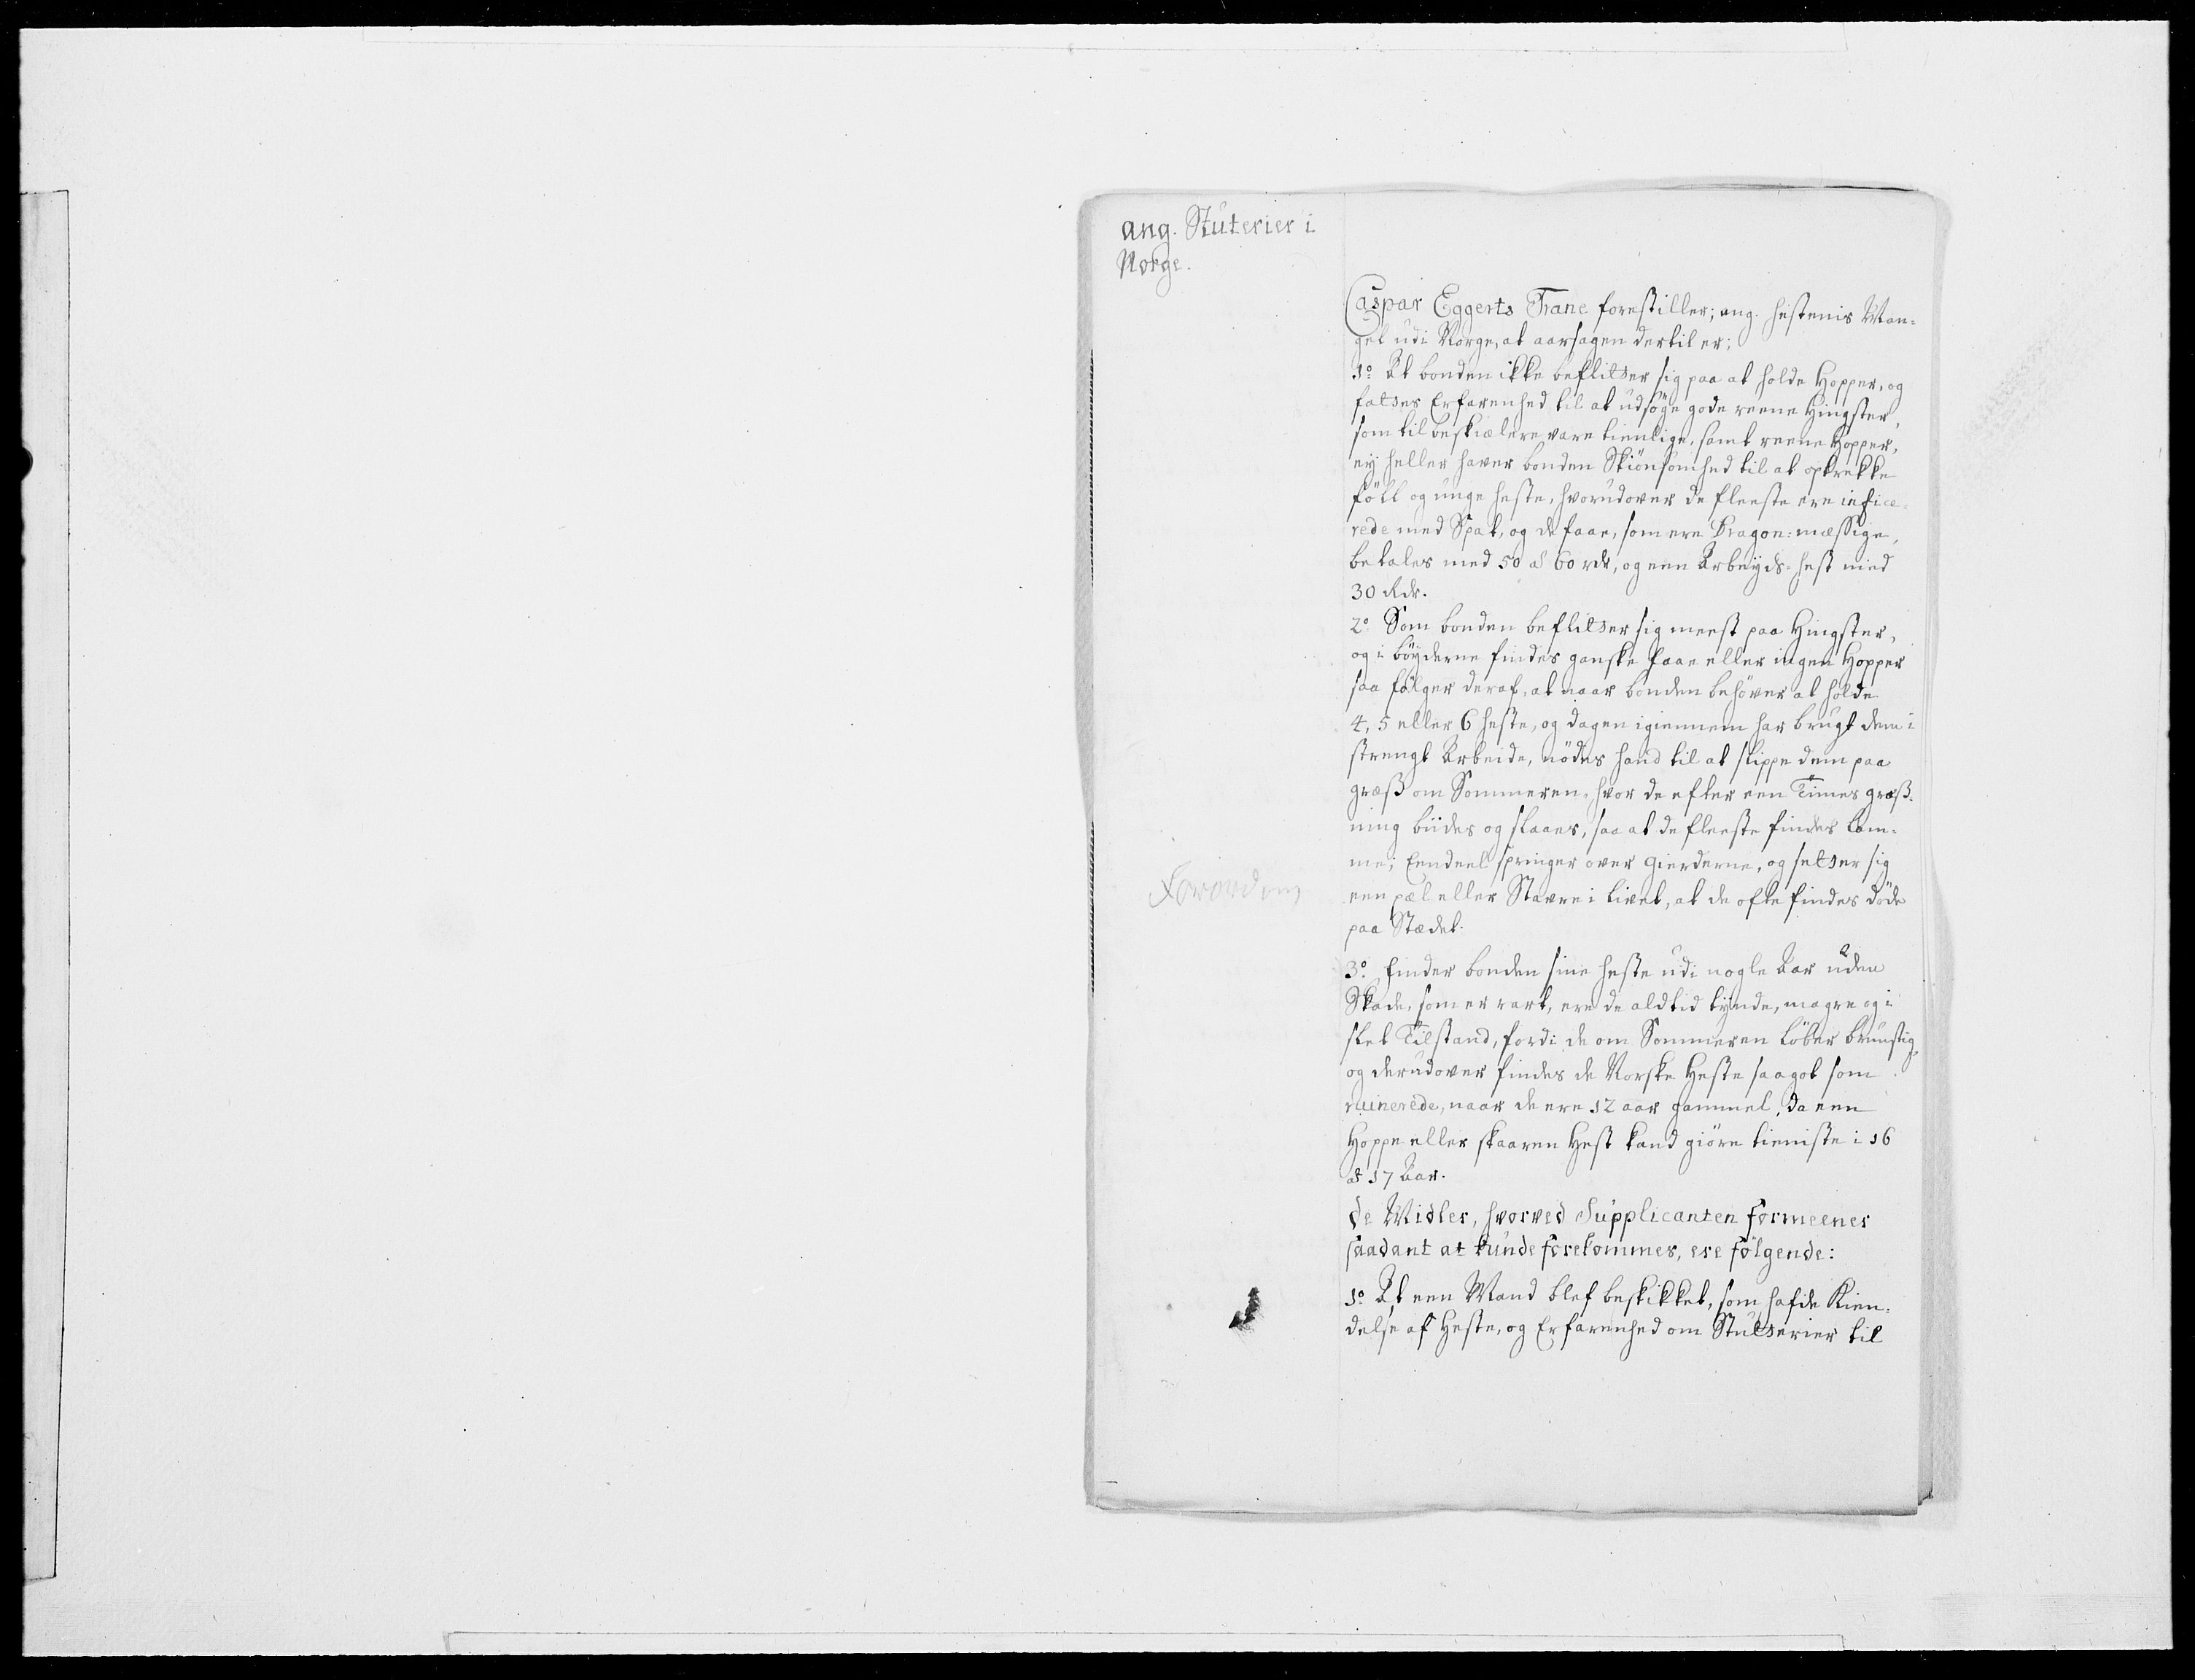 ang. Stuterier i
Norge.
Caspar Eggerts Trane forestiller; ang. hestenis Man-
gel udi Norge, at aarsagen dertil er;
1º At bonden ikke beflitser sig paa at holde Hopper, og
fatses Erfarenhed til at udsøge gode reene Hingster,
som til beskiælere vare tienlige, samt reene Hopper,
ey heller haver bonden Skiönsomhed til at optrekke
föll og unge heste, hvorudover de fleeste ere infice-
rede med Spat, og de faae, som ere Dragon-mæssige,
betales med 50 a 60 rdr, og een Arbeyds-hest med
30 Rdr.
2º Som bonden beflitser sig meest paa Hingster,
og i böyderne findes ganske faae eller ingen Hopper
saa fölger deraf, at naar bonden behöver at holde
4, 5 eller 6 heste, og dagen igiennem har brugt dem i
strengt Arbeide, nödes hand til at slippe dem paa
græss om Sommeren, hvor de efter een Times græss-
ning biides og slaaes, saa at de fleeste findes lam-
me; Eendeel springer over gierderne, og setser sig
een pæl eller Stavre i livet, at de ofte findes döde
paa Stædet.
Forordning
3º finder bonden sine heste udi nogle Aar uden
Skade, som er rart, ere de aldtid tynde, magre og i
slet Tilstand, fordi de om Sommeren löber brunstig,
og derudover findes de Norske Heste saagot som
ruinerede, naar de ere 12 aar gammel, da een
Hoppe eller skaaren Hest kand giöre tieniste i 16
a 17 Aar.
de Midler, hvorved Supplicanten formeener
saadant at kunde forekommes, ere fölgende:
1º At een Mand blef beskikket, som hafde Kien-
delse af Heste, og Erfarenhed om Stutserier til